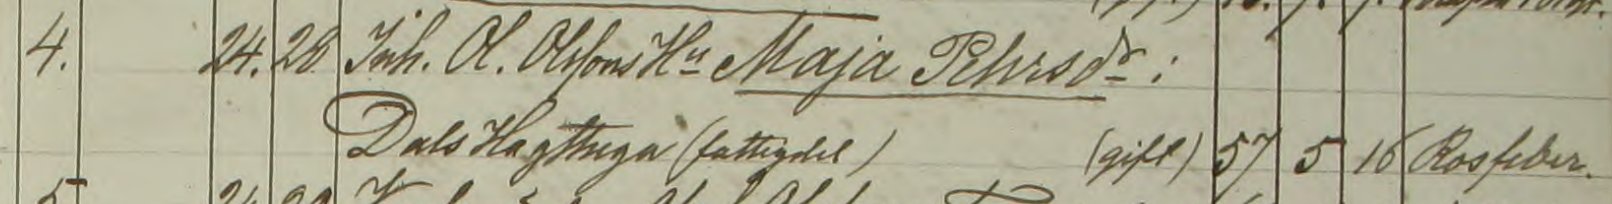 4. 24. 28 Inh. Ol. Olssons Hu Maja Pehrsdr:
Dals Hagstuga (fattigdel) (gift) 57 5 16 Rosfeber.
5